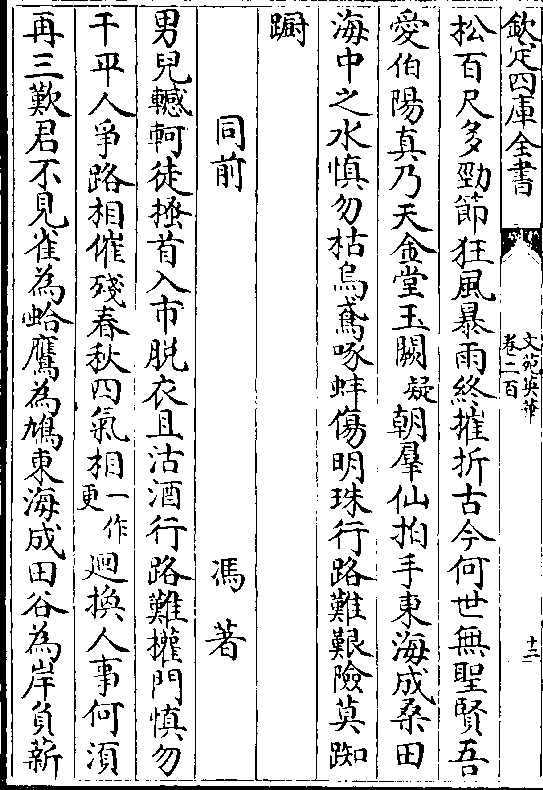 欽定四庫全書
文苑英華
卷二百
十二
松百尺多勁節狂風暴雨終摧折古今何世無聖賢吾
愛伯陽真乃天金堂玉闕凝朝羣仙拍手東海成桑田
海中之水慎勿枯烏鳶啄蚌傷明珠行路難艱險莫踟
蹰
同前 馮著
男兒轗軻徒搔首入市脱衣且沽酒行路難權門慎勿
干平人爭路相催殘春秋四氣相一作更迴換人事何須
再三歎君不見雀為蛤鷹為鳩東海成田谷為岸負薪